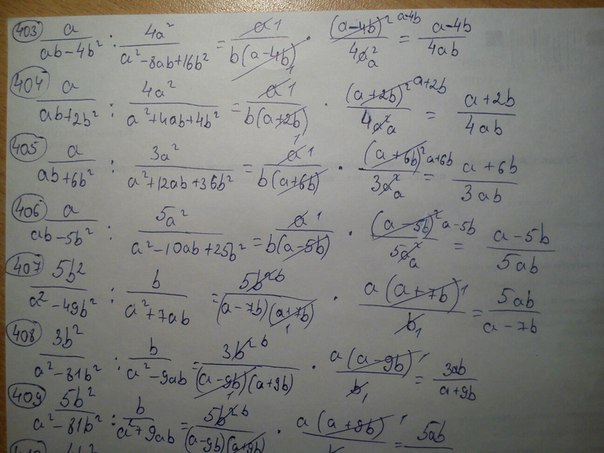 403) a/(ab-4b²) : 4a²/(a²-8ab+16b²) = a 1/(b(a-4b)) · (a-4b)² a-4b/(4a² a) = (a-4b)/(4ab)
404) a/(ab+2b²) : 4a²/(a²+4ab+4b²) = a 1/(b(a+2b)) · (a+2b)² a+2b/(4a² a) = (a+2b)/(4ab)
405) a/(ab+6b²) : 3a²/(a²+12ab+36b²) = a 1/(b(a+6b)) · (a+6b)² a+6b/(3a² a) = (a+6b)/(3ab)
406) a/(ab-5b²) : 5a²/(a²-10ab+25b²) = a 1/(b(a-5b)) · (a-5b)² a-5b/(5a² a) = (a-5b)/(5ab)
407) 5b²/(a²-49b²) : b/(a²+7ab) = 5b² b/((a-7b)(a+7b) 1) · a(a+7b) 1/(b 1) = 5ab/(a-7b)
408) 3b²/(a²-81b²) : b/(a²-9ab) = 3b² b/((a-9b)(a+9b)) · a(a-9b) 1/(b 1) = 3ab/(a+9b)
409) 5b²/(a²-81b²) : b/(a²+9ab) = 5b² b/((a-9b)(a+9b)) · a(a+9b) 1/ = 5ab